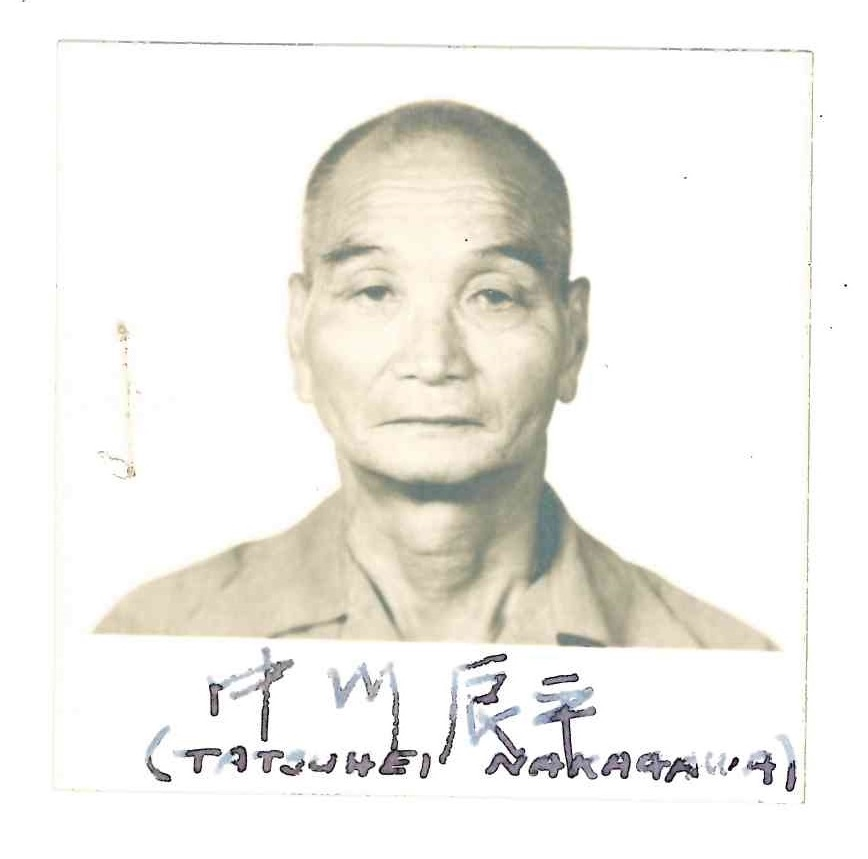 中川辰平
(TATSUHEI NAKAGAWA)